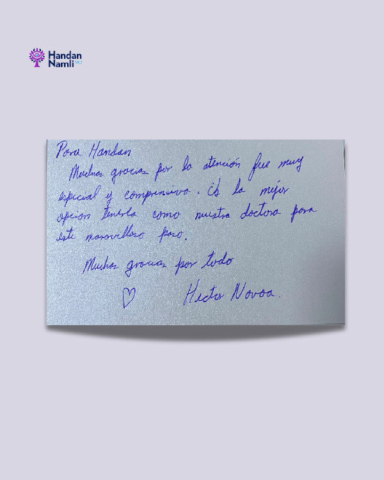 Handan
Namlı
Para Handan
Muchas gracias por la atención fue muy
especial y comprensiva. Es la mejor
opción tenerla como nuestra doctora para
este maravilloso paso.
Muchas gracias por todo
Hector Novoa.